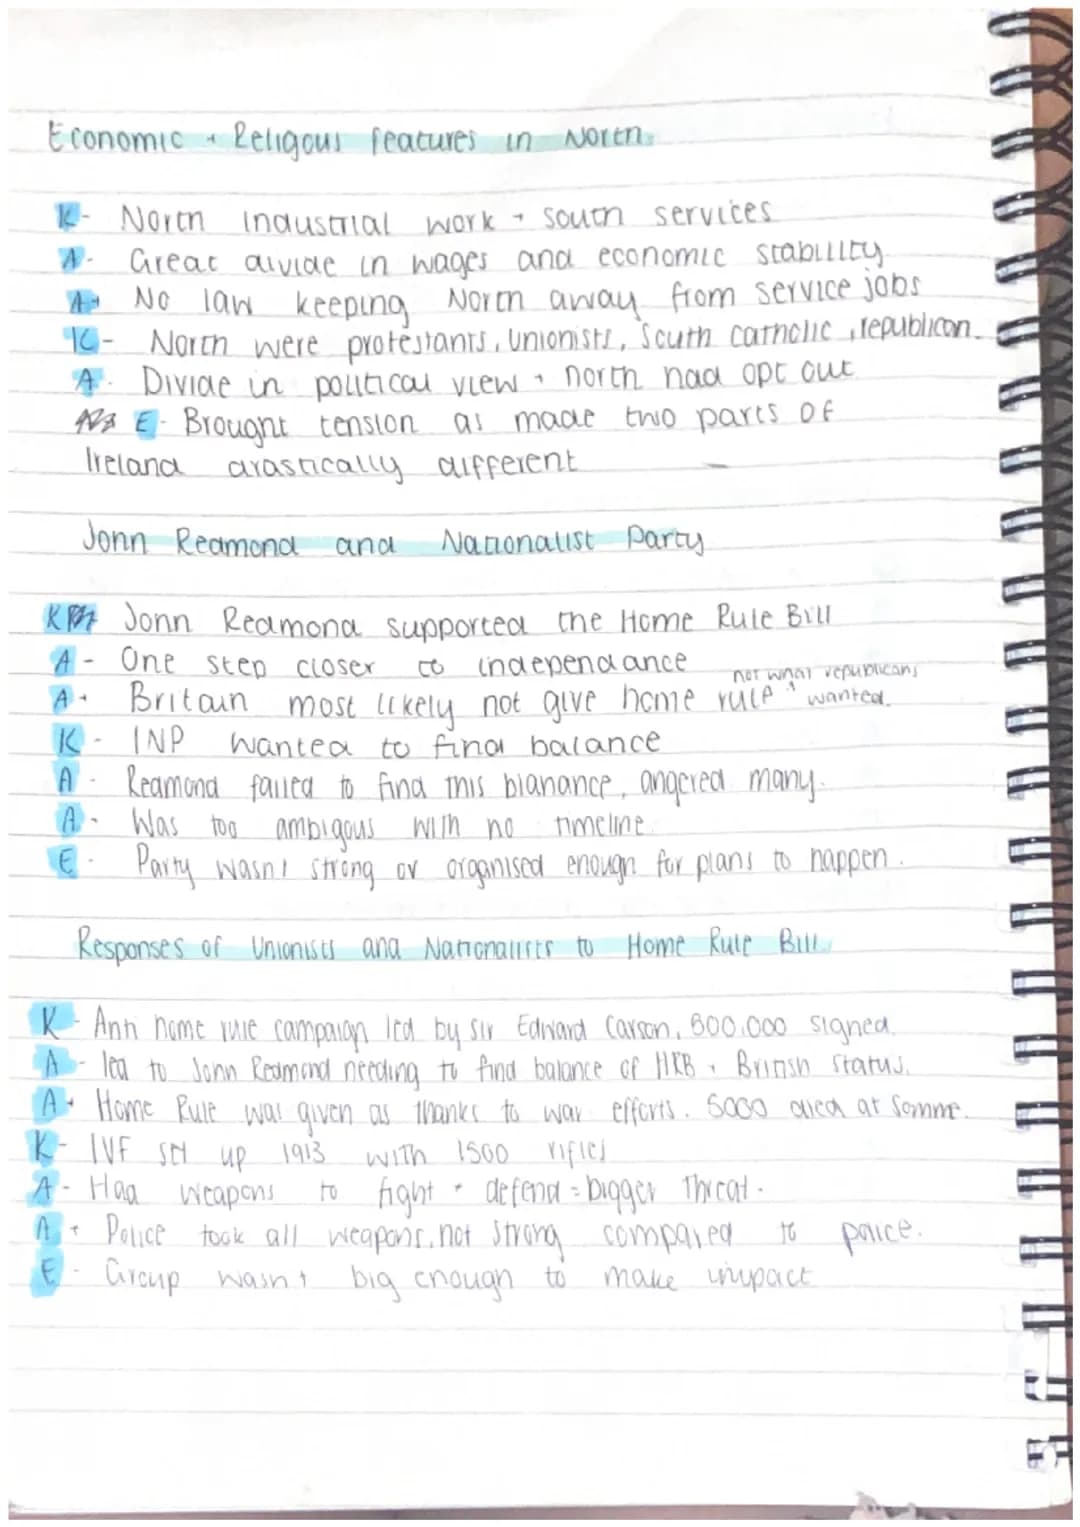 Economic + Religous features in North
K- North industrial work + south services
A- Great divide in wages and economic stability
A+ No law keeping North away from service jobs
K- North were protestants, Unionists, South catholic, republican
A- Divide in political view + north had opt out
E- Brought tension as made two parts of
Ireland drastically different
John Redmond and Nationalist Party
K John Redmond supported the Home Rule Bill
A- One step closer to independance
not what republicans
A+ Britain most likely not give home rule wanted.
K- INP wanted to find balance
A- Redmond failed to find this blanance, angered many.
A- Was too ambigous with no timeline
E- Party wasnt strong or organised enough for plans to happen.
Responses of Unionists and Nationalists to Home Rule Bill
K- Anti home rule campaign led by Sir Edward Carson, 600,000 signed.
A- led to John Redmond needing to find balance of HRB + British status.
A+ Home Rule was given as thanks to war efforts. 5000 died at Somme.
K- IVF set up 1913 with 1500 rifles
A- Had weapons to fight + defend = bigger threat.
A+ Police took all weapons, not strong compared to police.
E- Group wasnt big enough to make impact